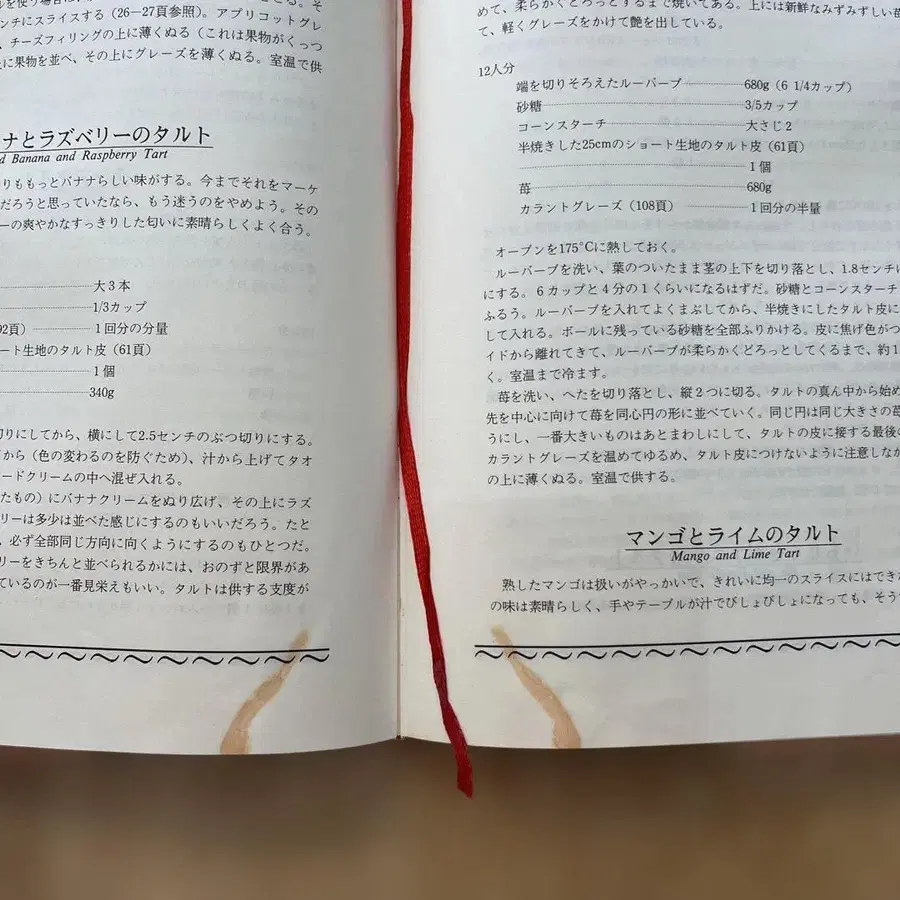 ルを使う場合は
ンチにスライスする（26–27頁参照）。アプリコットグレ
、チーズフィリングの上に薄くぬる（これは果物がくっつ
に果物を並べ、その上にグレーズを薄くぬる。室温で供
ナとラズベリーのタルト
d Banana and Raspberry Tart
りももっとバナナらしい味がする。今までそれをマーケ
だろうと思っていたなら、もう迷うのをやめよう。その
ーの爽やかなすっきりした匂いに素晴らしくよく合う。
大3本
1/3カップ
92頁） 1回分の分量
ート生地のタルト皮（61頁）
1個
340g
切りにしてから、横にして2.5センチのぶつ切りにする。
から（色の変わるのを防ぐため）、汁から上げてタオ
ードクリームの中へ混ぜ入れる。
たもの）にバナナクリームをぬり広げ、その上にラズ
リーは多少は並べた感じにするのもいいだろう。たと
、必ず全部同じ方向に向くようにするのもひとつだ。
リーをきちんと並べられるかには、おのずと限界があ
ているのが一番見栄えもいい。タルトは供する支度が
めて、柔らかくどろっとするまで焼いてある。上には新鮮なみずみずしい苺
て、軽くグレーズをかけて艶を出している。
12人分
端を切りそろえたルーバーブ 680g（6 1/4カップ）
砂糖 3/5カップ
コーンスターチ 大さじ2
半焼きした25cmのショート生地のタルト皮（61頁）
1個
苺 680g
カラントグレーズ（108頁） 1回分の半量
オーブンを175°Cに熱しておく。
ルーバーブを洗い、葉のついたまま茎の上下を切り落とし、1.8センチに
にする。6カップと4分の1くらいになるはずだ。砂糖とコーンスターチ
ふるう。ルーバーブを入れてよくまぶしてから、半焼きにしたタルト皮に
して入れる。ボールに残っている砂糖を全部ふりかける。皮に焦げ色がつ
イドから離れてきて、ルーバーブが柔らかくどろっとしてくるまで、約1
く。室温まで冷ます。
苺を洗い、へたを切り落とし、縦2つに切る。タルトの真ん中から始め
先を中心に向けて苺を同心円の形に並べていく。同じ円は同じ大きさの苺
うにし、一番大きいものはあとまわしにして、タルトの皮に接する最後の
カラントグレーズを温めてゆるめ、タルト皮につけないように注意しなが
の上に薄くぬる。室温で供する。
マンゴとライムのタルト
Mango and Lime Tart
熟したマンゴは扱いがやっかいで、きれいに均一のスライスにはできな
の味は素晴らしく、手やテーブルが汁でびしょびしょになっても、そう